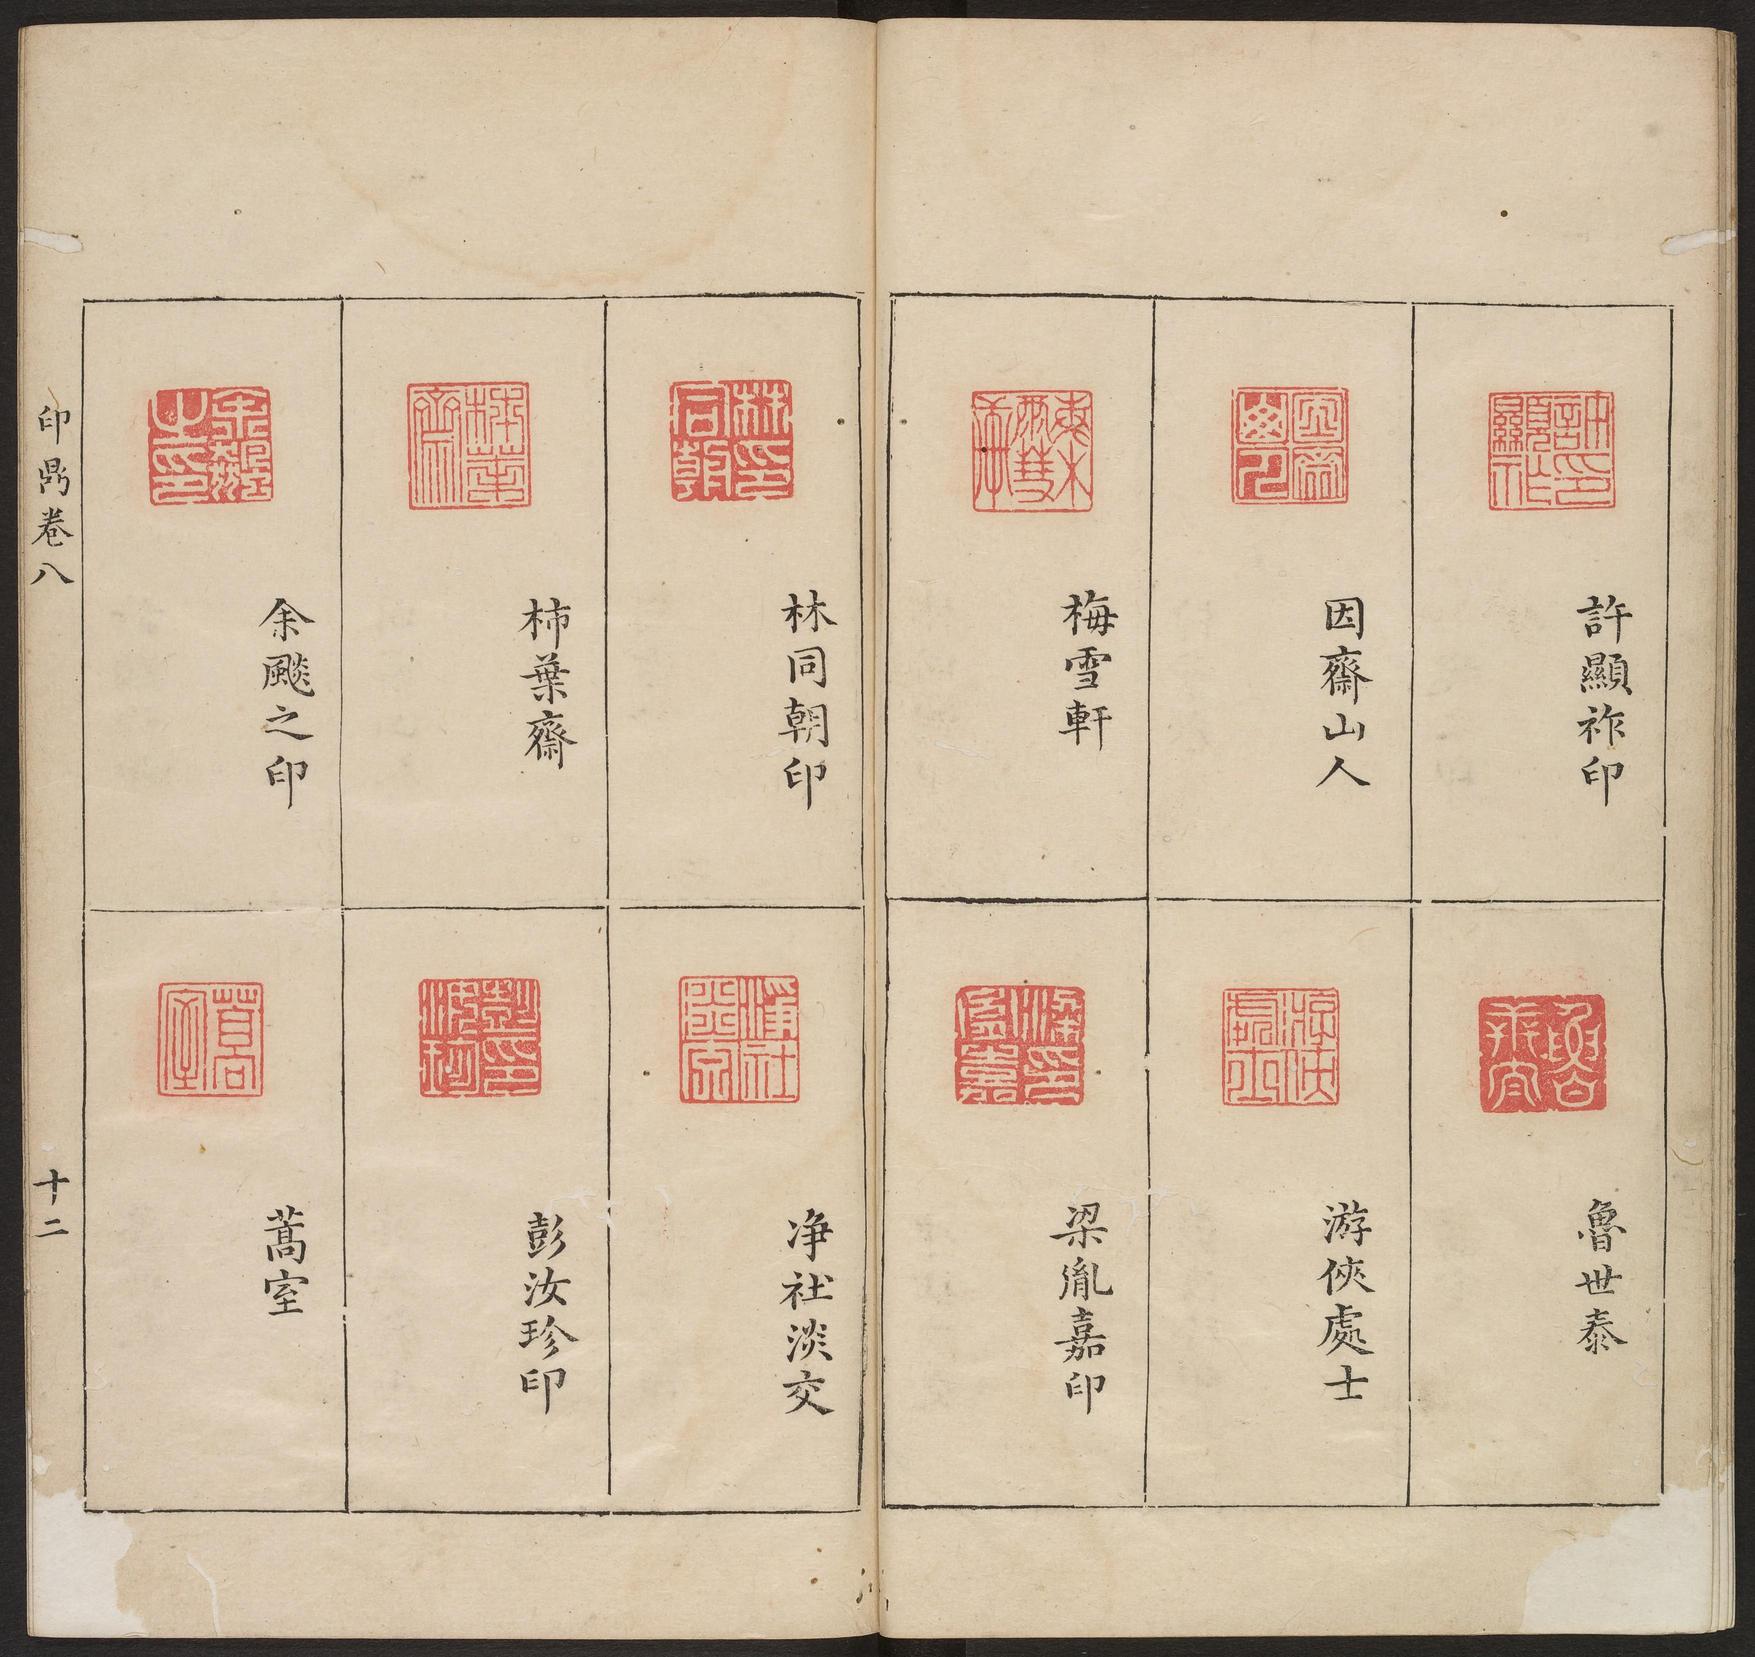 許顯祚印
因齋山人
梅雪軒
魯世泰
游俠處士
梁胤嘉印
林同朝印
柿葉齋
余颷之印
净社淡交
彭汝珍印
蒿室
印鼎卷八
十二